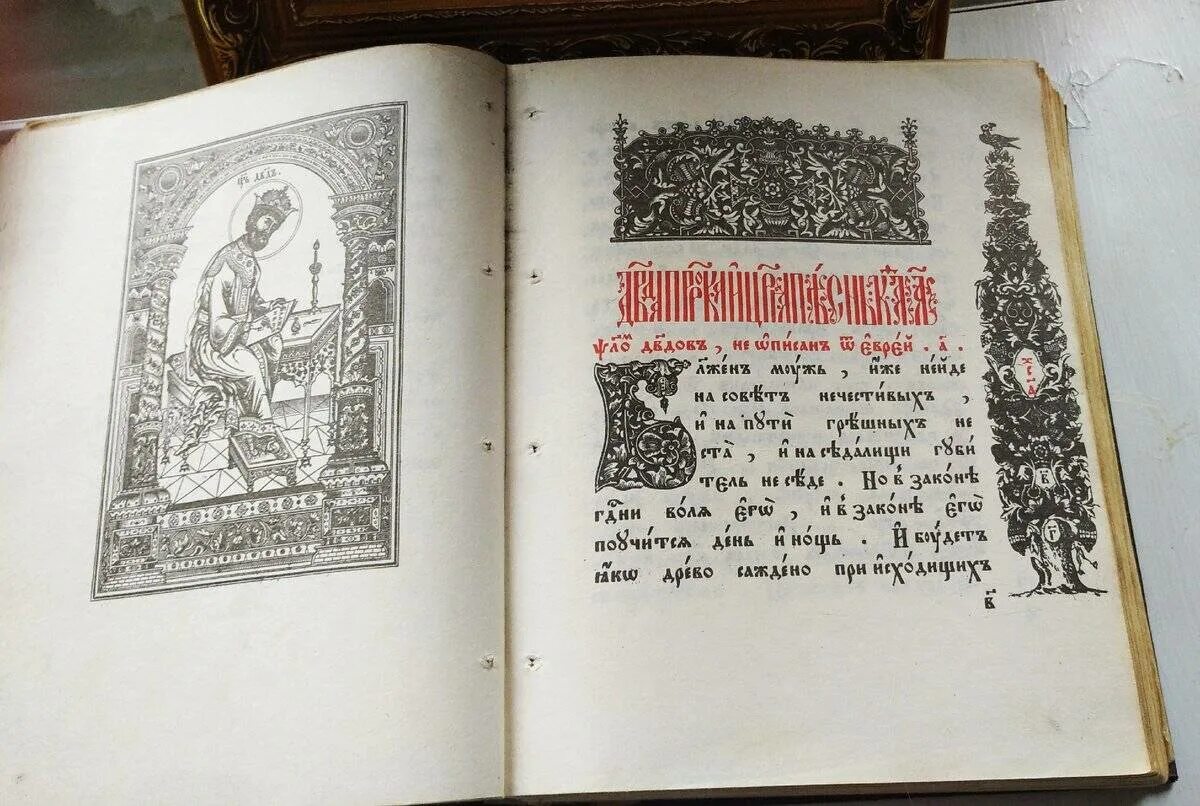 цр҃ь дв҃дъ.
Дв҃да прⷪ҇рка и҆ цр҃ѧ пѣ́снь
ѱало́мъ дв҃довъ, не ѡ҆пи́санъ ѿ є҆врє́й. а҃.
Блаже́нъ мꙋ́жъ, и҆́же не и҆́де
на совѣ́тъ нечести́выхъ,
и҆ на пꙋти̑ грѣ́шныхъ не
ста̀, и҆ на сѣда́лищи гꙋби́
тель не сѣ́де. Но в̾ зако́нѣ
гдⷭ҇ни во́лѧ є҆гѡ̀, и҆ в̾ зако́нѣ є҆гѡ̀
поꙋчи́тсѧ де́нь и҆ но́щь. И҆ бꙋ́детъ
ꙗ҆́кѡ дре́во сажде́но при и҆схо́дищихъ
в҃